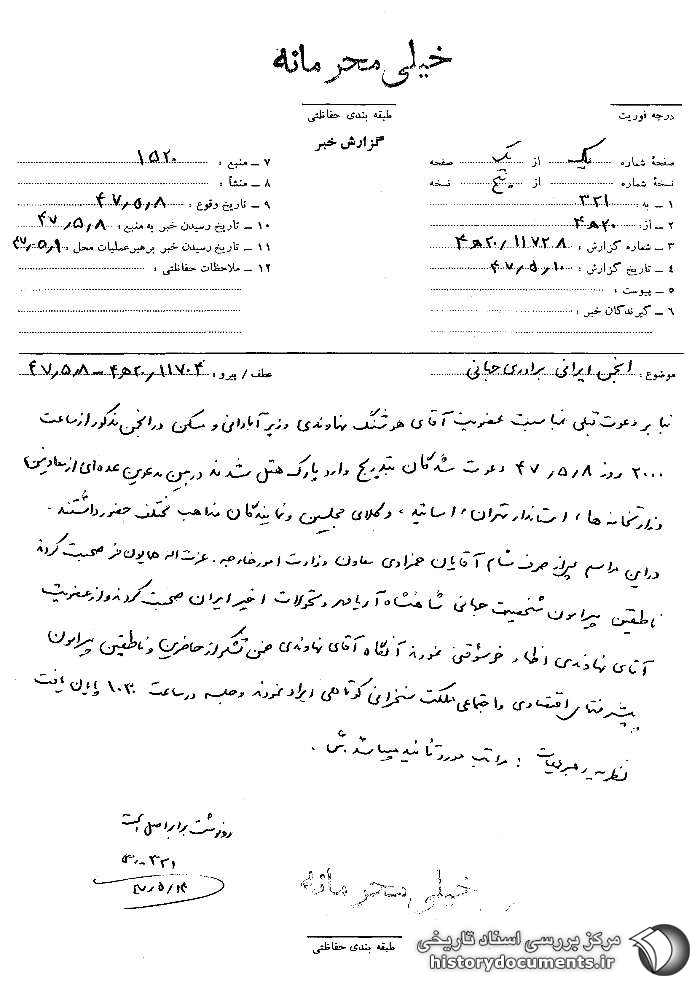 خیلی محرمانه
درجه فوریت
طبقه بندی حفاظتی
گزارش خبر
صفحهٔ شماره یک از یک صفحه
نسخهٔ شماره از پنج نسخه
۱ ــ به : ۳۲۱
۲ ــ از : ۲۰ﻫ۴
۳ ــ شماره گزارش : ۲۰/۱۱۷۲۸ﻫ۴
۴ ــ تاریخ گزارش : ۴۷/۵/۱۰
۵ ــ پیوست :
۶ ــ گیرندگان خبر :
۷ ــ منبع : ۱۵۲۰
۸ ــ منشأ :
۹ ــ تاریخ وقوع : ۴۷/۵/۸
۱۰ ــ تاریخ رسیدن خبر به منبع : ۴۷/۵/۸
۱۱ ــ تاریخ رسیدن خبر برهبر عملیات محل : ۴۷/۵/۹
۱۲ ــ ملاحظات حفاظتی :
موضوع : انجمن ایرانی برادری جهانی
عطف / پیرو : ۲۰/۱۱۷۰۴ﻫ۴ ــ ۴۷/۵/۸
بنا بر دعوت قبلی بمناسبت عضویت آقای هوشنگ نهاوندی وزیر آبادانی و مسکن در انجمن مذکور از ساعت
۲۰۰۰ روز ۴۷/۵/۸ دعوت شدگان بتدریج وارد پارک هتل شدند در بین مدعوین عده‌ای از معاونین
وزارتخانه ها، استاندار تهران، اساتید، وکلای مجلسین و نمایندگان مذاهب مختلف حضور داشتند .
در این مراسم پس از صرف شام آقایان معاون وزارت امور خارجه . عزت اله همایون فر صحبت کردند
ناطقین پیرامون شخصیت جهانی شاهنشاه آریامهر و تحولات اخیر ایران صحبت کردند و از عضویت
آقای نهاوندی اظهار خوشوقتی نمودند آنگاه آقای نهاوندی ضمن تشکر از حاضرین و ناطقین پیرامون
پیشرفتهای اقتصادی و اجتماعی مملکت سخنرانی کوتاهی ایراد نمودند و جلسه در ساعت ۱۰۳۰ پایان یافت
نظریه رهبر عملیات : مراتب مورد تأئید میباشد
رونوشت برابر اصل است
۳۲۱
۴۷/۵/۱۴
خیلی محرمانه
طبقه بندی حفاظتی
مرکز بررسی اسناد تاریخی
historydocuments.ir